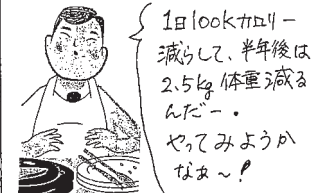 1日100Kカロリー
減らして、半年後は
2.5kg 体重減る
んだー。
やってみようか
なぁ〜!